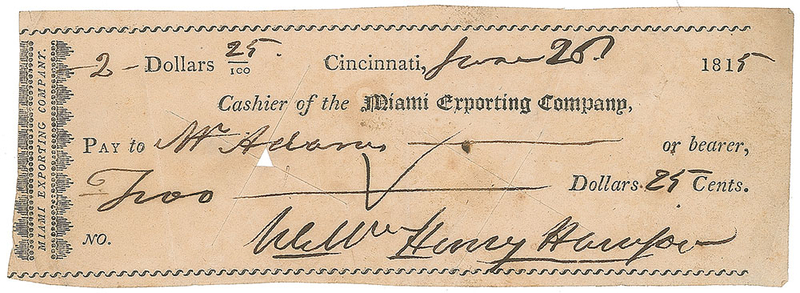 MIAMI EXPORTING COMPANY.
2 Dollars 25/100 Cincinnati, June 1815
Cashier of the Miami Exporting Company,
PAY to Mr Adams or bearer,
Two Dollars 25 Cents.
NO. Henry Harrison